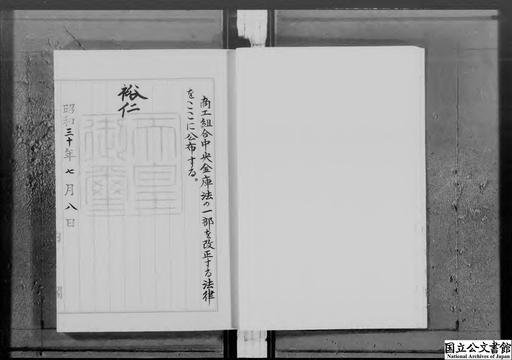 商工組合中央金庫法の一部を改正する法律
をここに公布する。
裕仁
天皇
御璽
昭和三十年七月八日
国立公文書館
National Archives of Japan